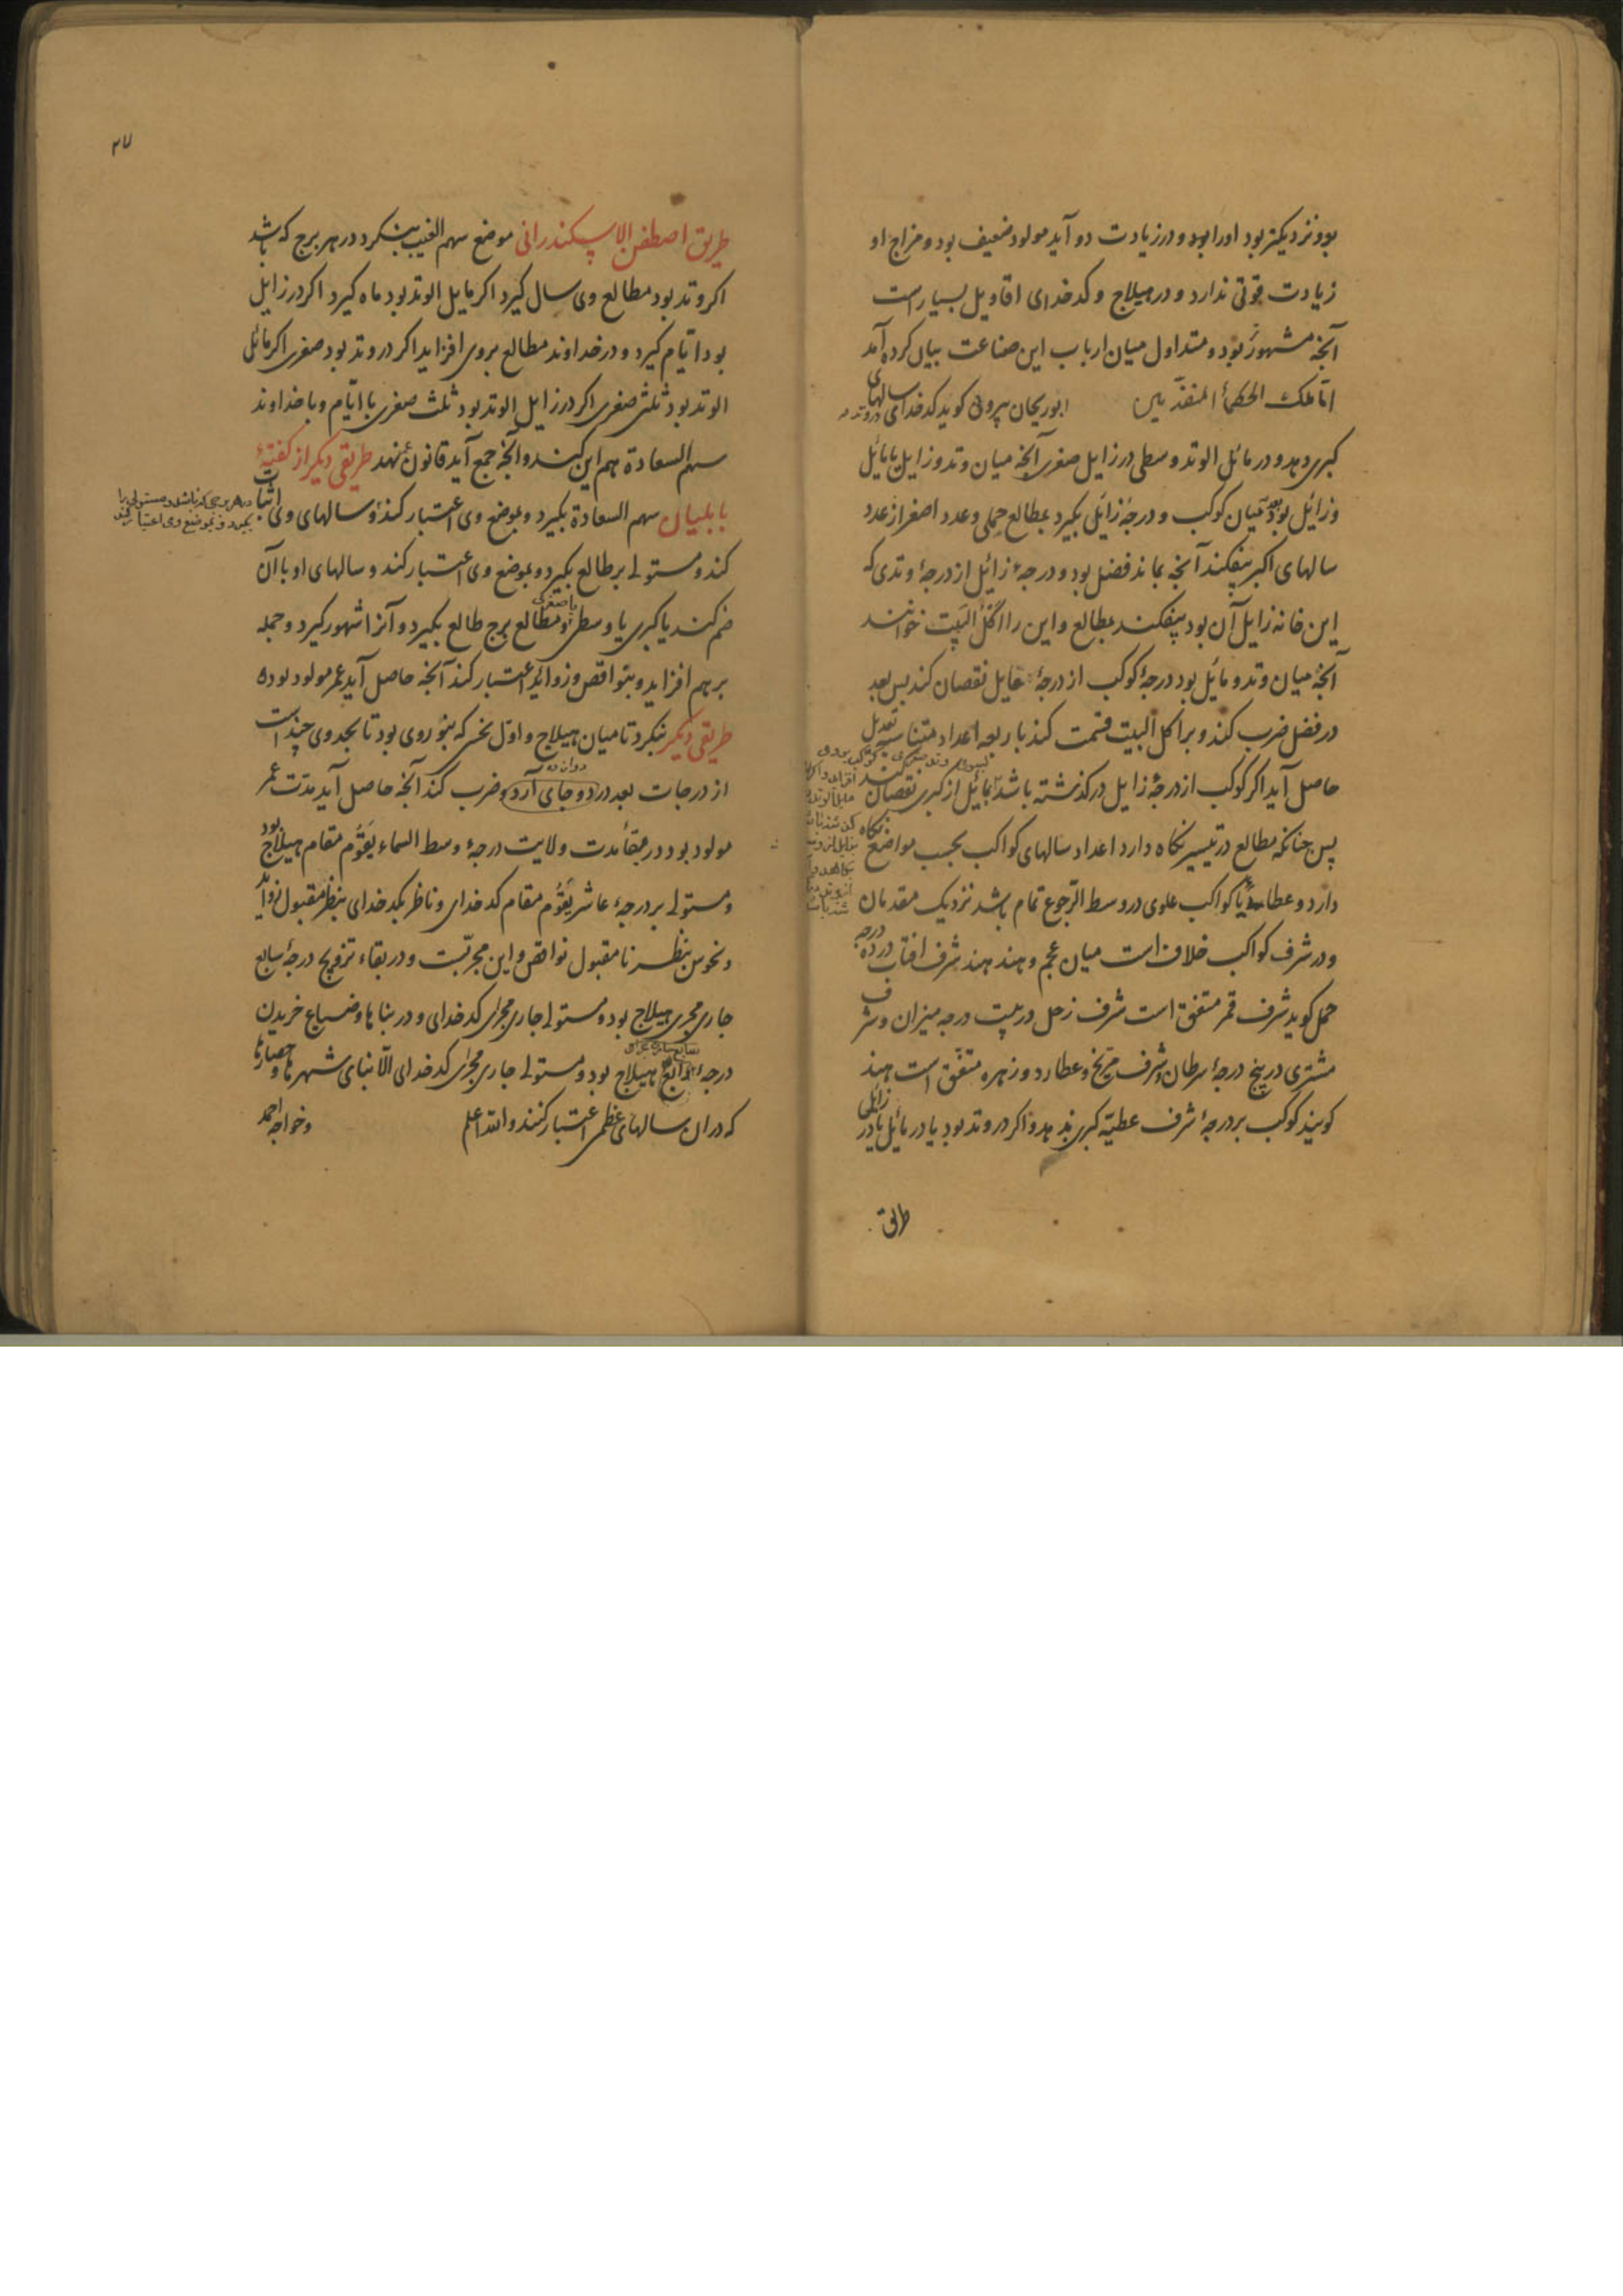 بود نزدیکتر بود اورا بود و درزیادت دو آید مولود ضعیف بود و مزاج او
زیادت قوتی ندارد و در هیلاج و کدخدای اقاویل بسیارست
آنچه مشهور بود و متداول میان ارباب این صناعت بیان کرده آمد
اتاملک الحکمأ المتقدمین ابوریحان بیرونی کوید کدخدای سالهای
کبری دهد و در مائل الوتد وسطی در زایل صغری آنجه میان وتد و زایل یا مائل
و زائل بود بعد میان کوکب و درجهٔ زایلی بکیرد بمطالع حملی و عدد اصغر از عدد
سالهای اکبر بیفکند آنجه بماند فضل بود و درجهٔ زائل از درجهٔ وتدی که
این خانه زایل آن بود بیفکند بمطالع و این را اکل البیت خوانند
آنجه میان وتد و مایل بود درجهٔ کوکب از درجهٔ مایل نقصان کند بس بعد
در فضل ضرب کند و بر اکل البیت قسمت کند باربعه اعداد متناسبه تعدیل
حاصل آید اکر کوکب از درجهٔ زایل درکذشته باشد بمائل از کبری نقصان کند
پس جنانکه مطالع در تیسیر نکاه دارد اعداد سالهای کواکب بحسب مواضع نکاه
دارد و عطایا کواکب علوی در وسط الرجوع تمام باشد نزدیک مقدمان
و در شرف کواکب خلاف است میان عجم و هند هند شرف افتاب در ده درجه
حمل کوید شرف قمر متفق است شرف زحل در بیست درجه میزان و شرف
مشتری در پنج درجهٔ سرطان و شرف مریخ و عطارد و زهره متفق است هند
کویند کوکب بر درجهٔ شرف عطیهٔ کبری بدهد و اکر در وتد بود یا در مائل یا در زایلی
طریق
۲۷
طریق اصطفن الاسکندرانی موضع سهم الغیب بنکرد در هر برج که باشد
اکر وتد بود مطالع وی سال کیرد اکر مایل الوتد بود ماه کیرد اکر در زایل
بود ایام کیرد و در خداوند مطالع بروی افزاید اکر در وتد بود صغری اکر مائل
الوتد بود ثلثی صغری اکر در زایل الوتد بود ثلث صغری با ایام و با خداوند
سهم السعادة هم این کند و آنجه جمع آید قانون نهد طریقی دیکر از کفتهٔ
بابلیان سهم السعادة بکیرد و بموضع وی اعتبار کند و سالهای وی اثبات
در هر برجی که باشد و مستولی را
بکیرد و بموضع وی اعتبار کند
کند و مستولی بر طالع بکیرد و بموضع وی اعتبار کند و سالهای او با آن
ضم کند یا کبری یا وسطی یا صغری و مطالع برج طالع بکیرد و آنرا شهور کیرد و جمله
برهم افزاید و بنواقص و زوائد اعتبار کند آنجه حاصل آید عمر مولود بوده
طریقی دیکر بنکرد تا میان هیلاج و اول نحسی که بنور وی بود تا بجدوی چندست
از درجات بعد در دو جای آرد و ضرب کند آنجه حاصل آید مدت عمر
مولود بود در بقأ مدت ولایت درجهٔ وسط السماء یقوم مقام هیلاج بود
و مستولی بر درجهٔ عاشر یقوم مقام کدخدای و ناظر بکدخدای بنظر مقبول زواید
و نحوس بنظر نا مقبول نواقص و این مجربست و در بقاء تزویج درجهٔ سابع
جاری مجری هیلاج بود و مستولی جاری مجرای کدخدای و در بناها و ضیاع خریدن
درجهٔ رابع هیلاج بود و مستولی جاری مجرای کدخدای الا بنای شهرها و حصارها
که در ان سالهای عظمی اعتبار کنند والله اعلم وخواجه احمد